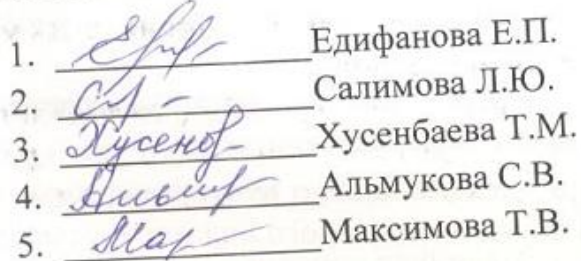 1. Едифанова Е.П.
2. Салимова Л.Ю.
3. Хусенб Хусенбаева Т.М.
4. Альм Альмукова С.В.
5. Мак Максимова Т.В.